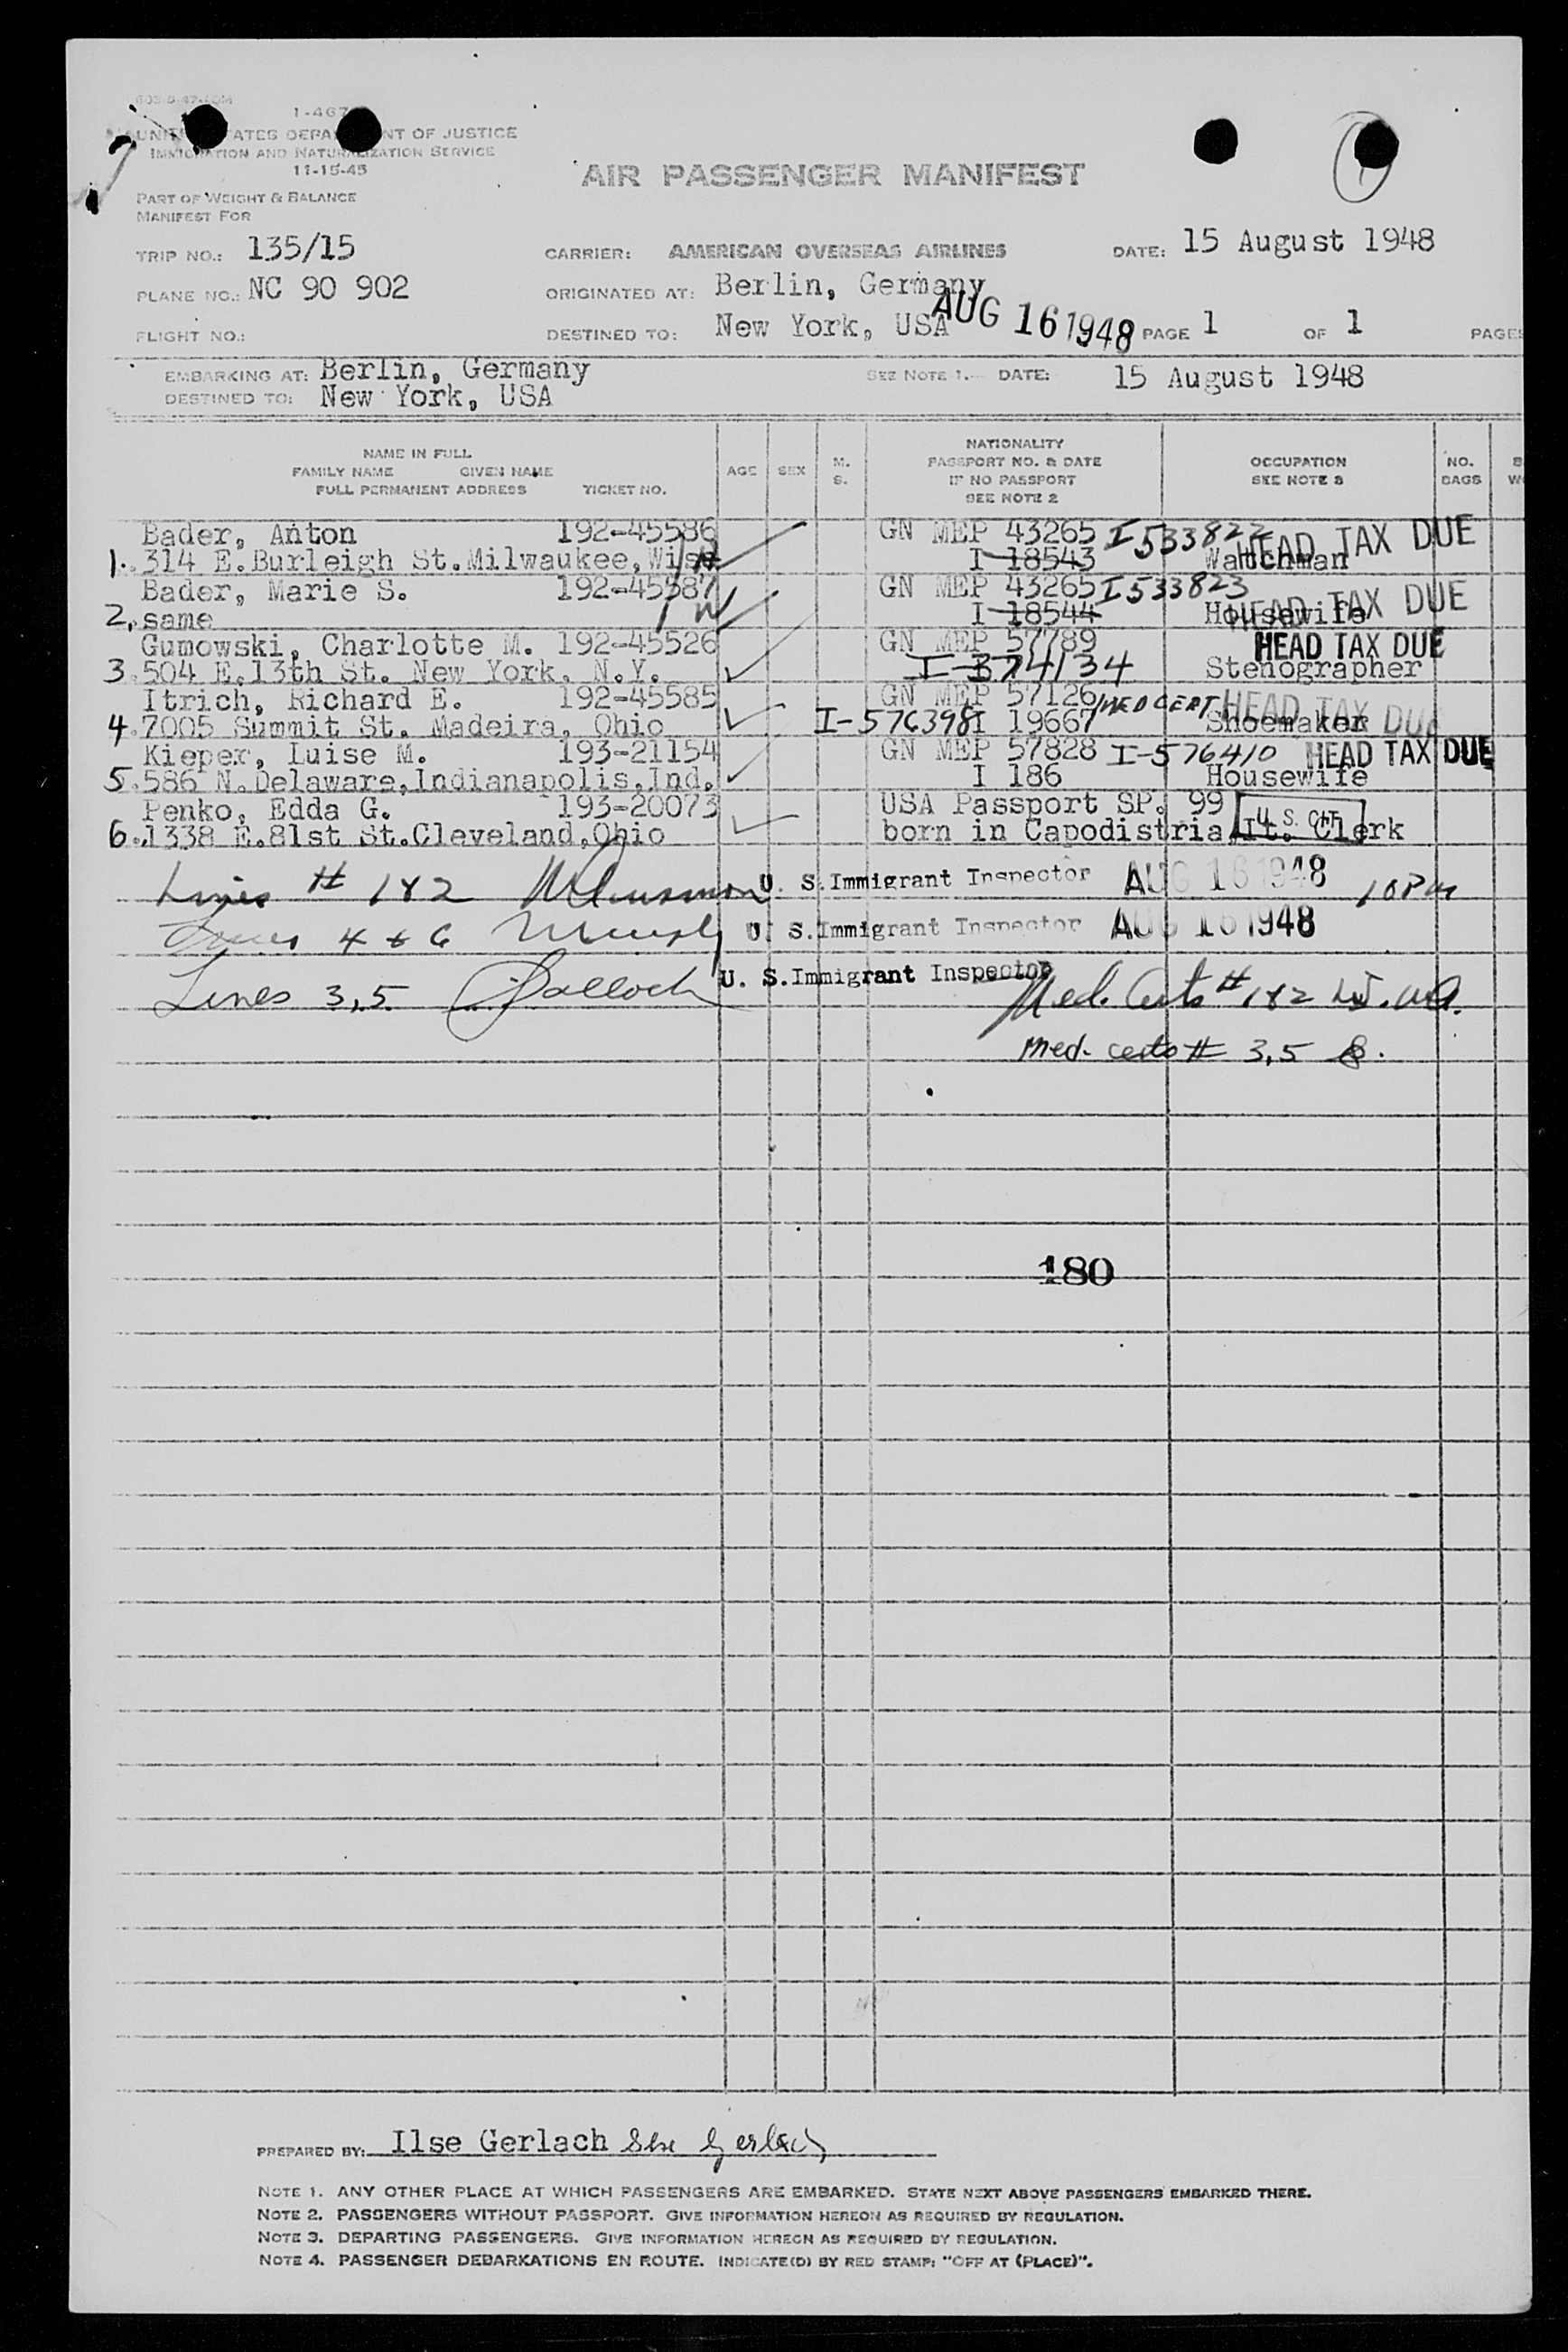 1-467
UNITED STATES DEPARTMENT OF JUSTICE
IMMIGRATION AND NATURALIZATION SERVICE
11-15-45
AIR PASSENGER MANIFEST
PART OF WEIGHT & BALANCE
MANIFEST FOR
TRIP NO.: 135/15 CARRIER: AMERICAN OVERSEAS AIRLINES DATE: 15 August 1948
PLANE NO.: NC 90 902 ORIGINATED AT: Berlin, Germany
FLIGHT NO.: DESTINED TO: New York, USA AUG 16 1948 PAGE 1 OF 1 PAGES
EMBARKING AT: Berlin, Germany SEE NOTE 1.— DATE: 15 August 1948
DESTINED TO: New York, USA
NAME IN FULL
FAMILY NAME GIVEN NAME
FULL PERMANENT ADDRESS TICKET NO.
AGE SEX M. S.
NATIONALITY
PASSPORT NO. & DATE
IF NO PASSPORT
SEE NOTE 2
OCCUPATION
SEE NOTE 3
NO.
BAGS
Bader, Anton 192-45586 GN MEP 43265 I533822 HEAD TAX DUE
1. 314 E.Burleigh St.Milwaukee,Wisc I 18543 Watchman
Bader, Marie S. 192-45587 GN MEP 43265 I533823 HEAD TAX DUE
2. same I 18544 Housewife
Gumowski, Charlotte M. 192-45526 GN MEP 57789 HEAD TAX DUE
3. 504 E.13th St. New York, N.Y. I-374134 Stenographer
Itrich, Richard E. 192-45585 GN MEP 57126 MED CERT HEAD TAX DUE
4. 7005 Summit St. Madeira, Ohio I-576398 I 19667 Shoemaker
Kieper, Luise M. 193-21154 GN MEP 57828 I-576410 HEAD TAX DUE
5. 586 N.Delaware,Indianapolis,Ind. I 186 Housewife
Penko, Edda G. 193-20073 USA Passport SP. 99 U.S. CIT.
6. 1338 E.81st St.Cleveland,Ohio born in Capodistria,It. Clerk
Lines # 1&2 U. S. Immigrant Inspector AUG 16 1948 10PM
Lines 4 & 6 U. S. Immigrant Inspector AUG 16 1948
Lines 3,5 U. S. Immigrant Inspector
Med. Certs # 1&2
Med. certs # 3,5
180
PREPARED BY: Ilse Gerlach Ilse Gerlach
NOTE 1. ANY OTHER PLACE AT WHICH PASSENGERS ARE EMBARKED. STATE NEXT ABOVE PASSENGERS EMBARKED THERE.
NOTE 2. PASSENGERS WITHOUT PASSPORT. GIVE INFORMATION HEREON AS REQUIRED BY REGULATION.
NOTE 3. DEPARTING PASSENGERS. GIVE INFORMATION HEREON AS REQUIRED BY REGULATION.
NOTE 4. PASSENGER DEBARKATIONS EN ROUTE. INDICATE(D) BY RED STAMP: "OFF AT (PLACE)".